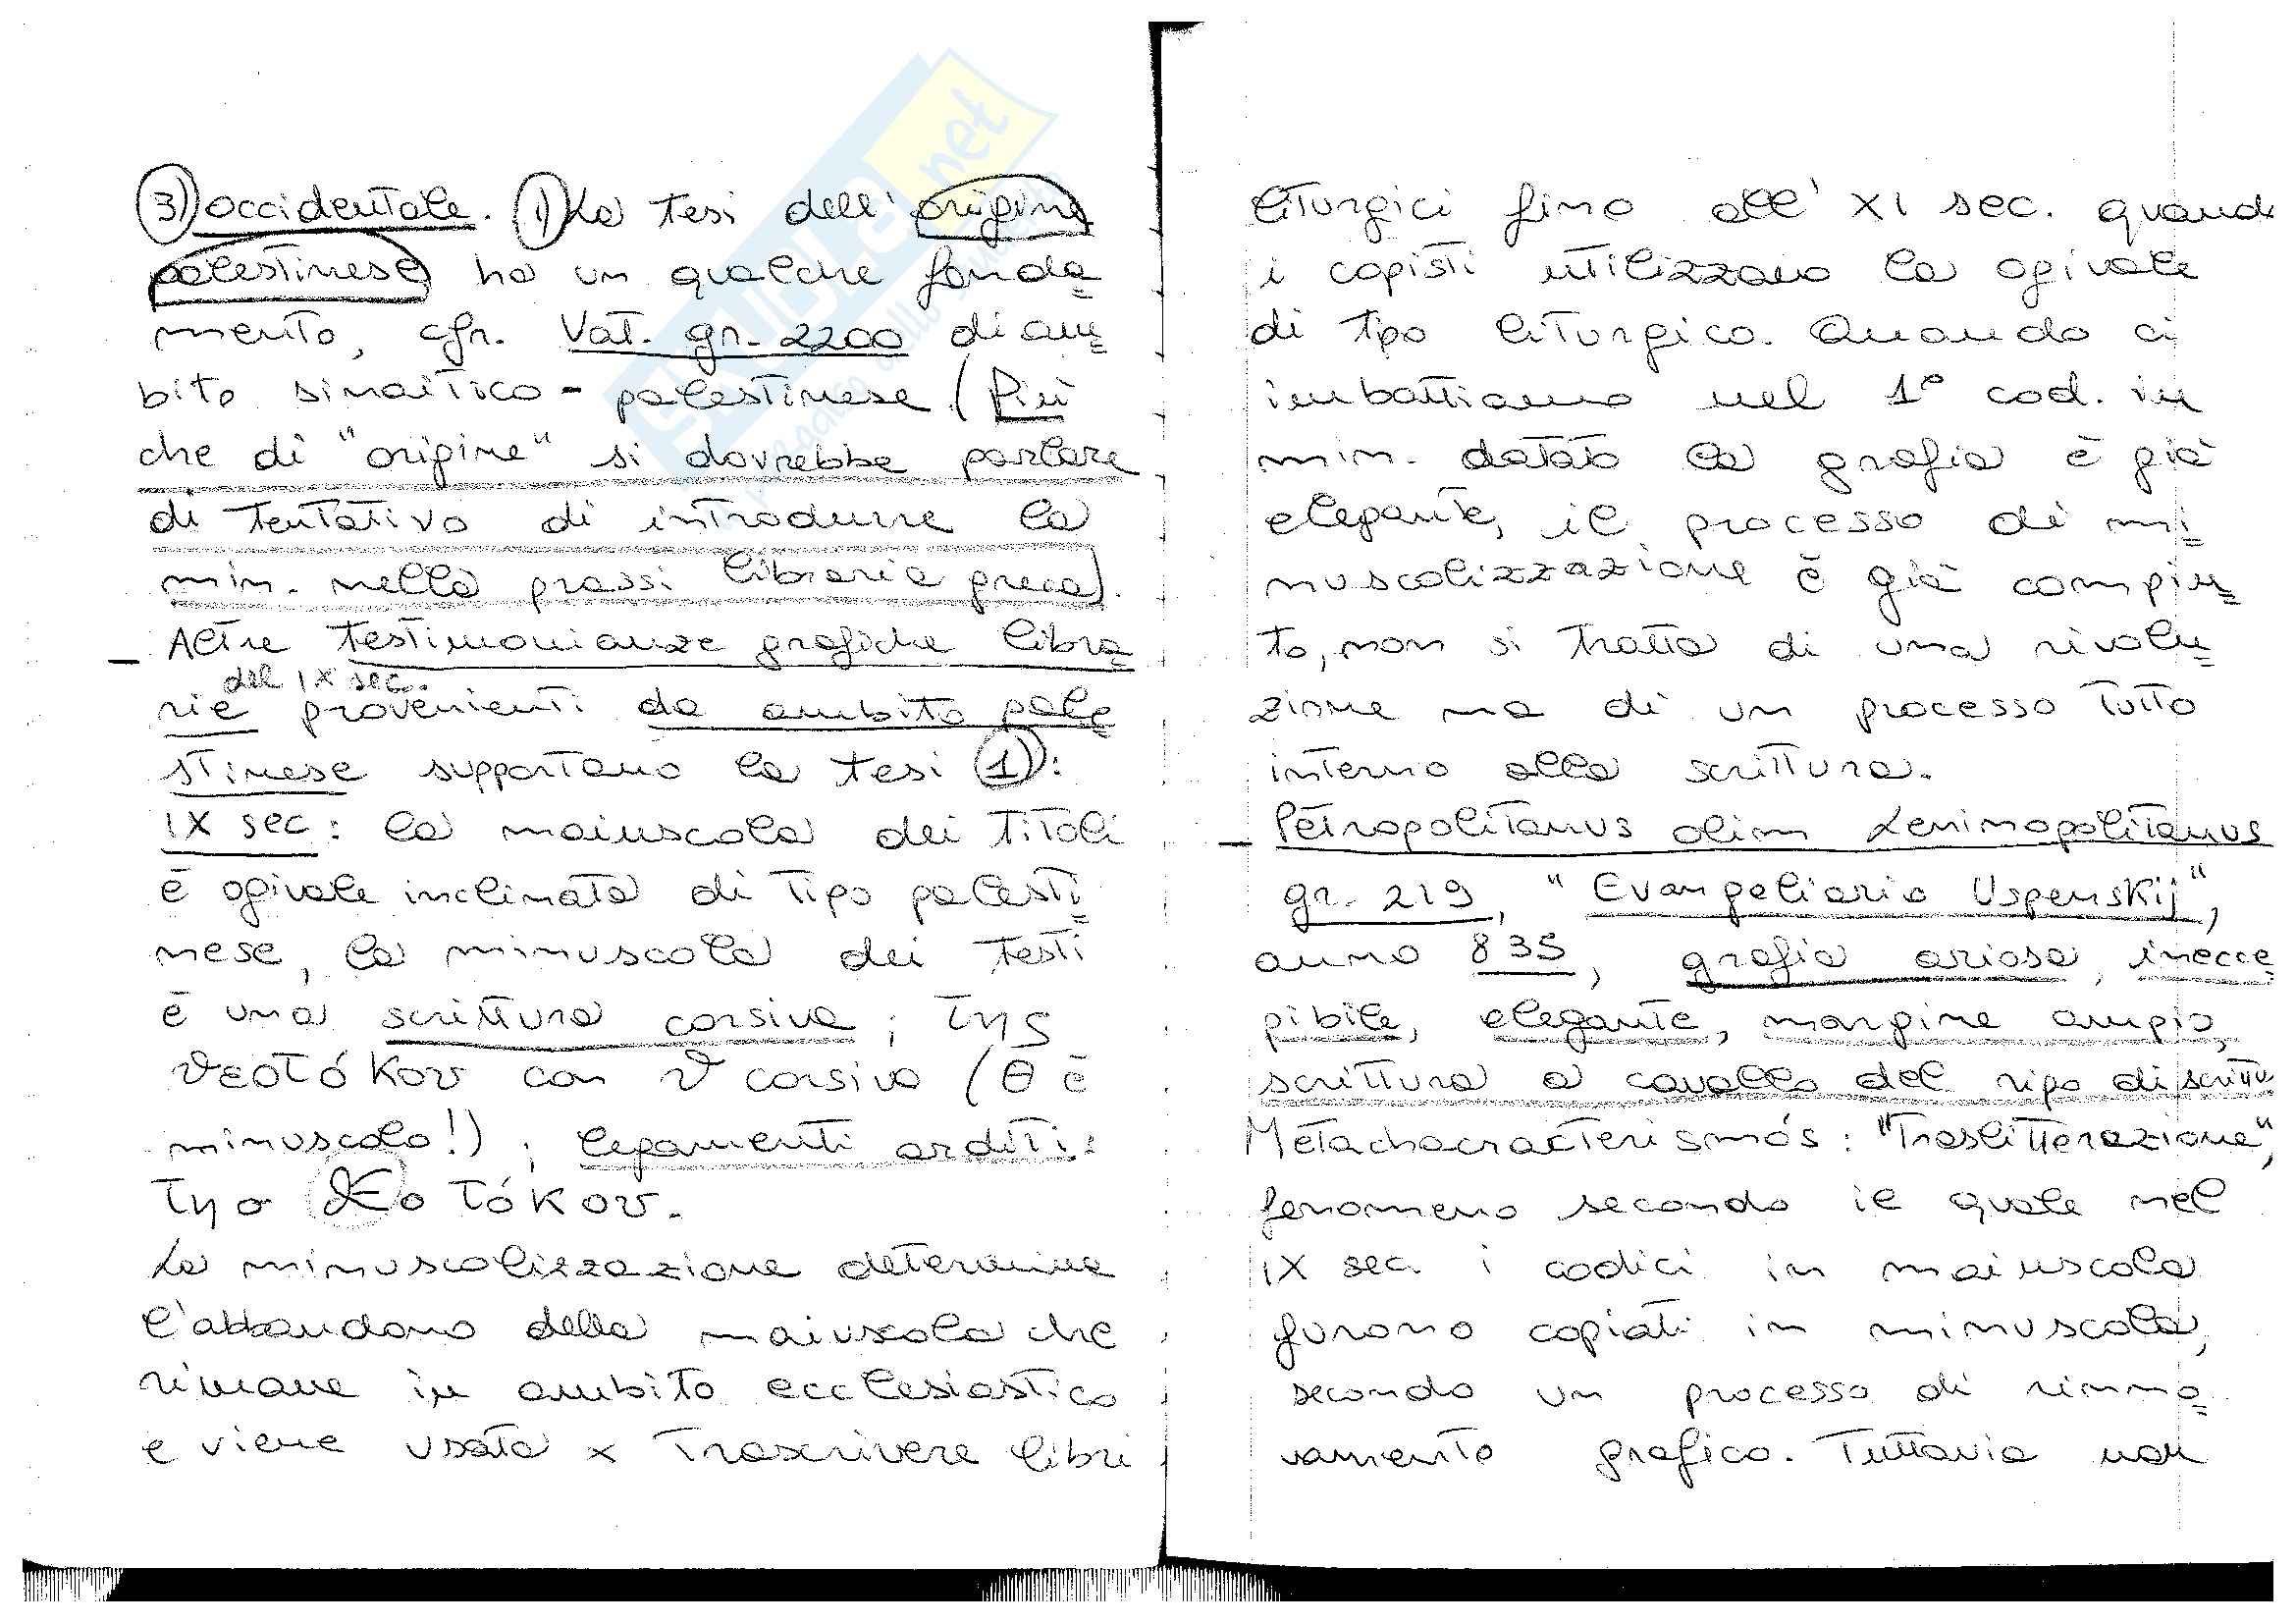 3) occidentale. 1) La tesi dell'origine
palestinese ha un qualche fonda=
mento, cfr. Vat. gr. 2200 di am=
bito sinaitico-palestinese (Più
che di "origine" si dovrebbe parlare
di tentativo di introdurre la
min. nella prassi libraria greca).
– Altre testimonianze grafiche libra=
del IX sec.
rie provenienti da ambito pale=
stinese supportano la tesi 1):
IX sec: la maiuscola dei titoli
è ogivale inclinata di tipo palesti=
nese, la minuscola dei testi
è una scrittura corsiva; της
ϑεοτόκου con ϑ corsivo (θ è
minuscolo!); legamenti arditi:
τησ ϑεοτόκου.
La minuscolizzazione determina
l'abbandono della maiuscola che
rimane in ambito ecclesiastico
e viene usata x trascrivere libri
liturgici fino all'XI sec. quand
i copisti utilizzano la ogivale
di tipo liturgico. Quando ci
imbattiamo nel 1° cod. in
min. datato la grafia è già
elegante, il processo di mi=
nuscolizzazione è già compiu=
to, non si tratta di una rivolu=
zione ma di un processo tutto
interno alla scrittura.
– Petropolitanus olim Leninopolitanus
gr. 219, "Evangeliario Uspenskij",
anno 835, grafia ariosa, inecce
pibile, elegante, margine ampio,
scrittura a cavallo del rigo di scrittu
Metachacracterismós: "Traslitterazione",
fenomeno secondo il quale nel
IX sec. i codici in maiuscola
furono copiati in minuscola,
secondo un processo di rinno=
vamento grafico. Tuttavia non